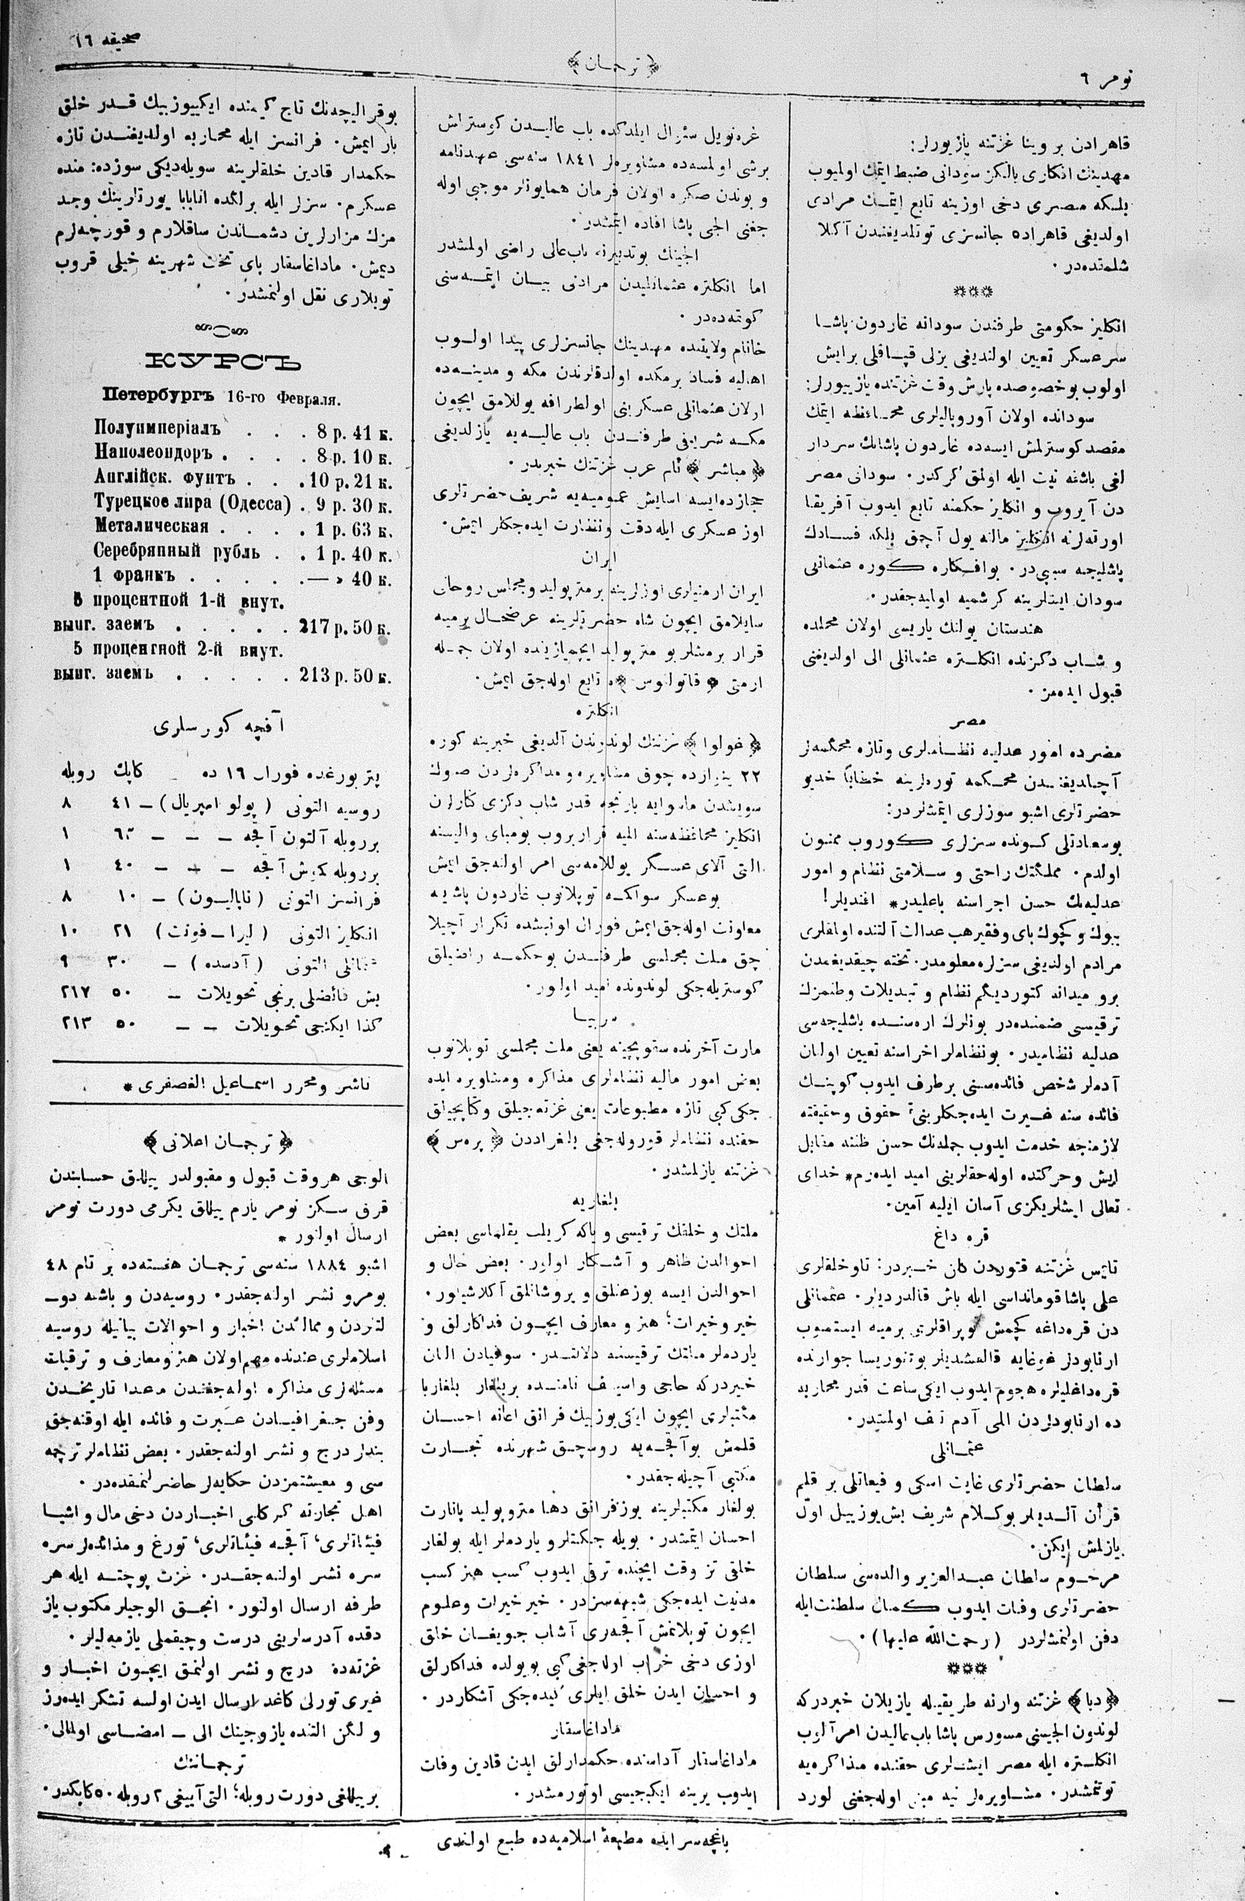 نومر ٦
﴿ ترجمان ﴾
صحيفه ١٦
قاهرادن بر وينا غزتنه يازيورلر:
مهدينك افكارى يالكز سودانى ضبط ايتمك اولميوب
بلكه مصرى دخى اوزينه تابع ايتمك مرادى
اولديغى قاهراده جانسزى توتلديغندن آكلا
شلمقده‌در.
انكليز حكومتى طرفندن سودانه غاردون پاشا
سرعسكر تعيين اولنديغى بزلى قپاقلى برايش
اولوب بوخصوصده پارش وقت غزتنده يازييورلر:
سودانده اولان آوروپاليلرى محافظه ايتمك
مقصد كوسترلمش ايسه‌ده غاردون پاشانك سردار
لغى باشقه نيت ايله اولمق كركدر. سودانى مصر
دن آيروب و انكليز حكمنه تابع ايدوب آفريقا
اورته‌لرنه انكليز مالنه يول آچمق بلكه فسادك
باشليجه سببى‌در. بوافكاره كوره عثمانلى
سودان ايشلرينه كرشميه اوليه‌جقدر.
هندستان يولنك ياريسى اولان محلده
و شاب دكزنده انكلتره عثمانلى الى اولديغنى
قبول ايده‌مز.
مصر
مصرده امور عدليه نظاملرى وتازه محكمه‌لر
آچلديغندن محكمه توره‌لرينه خطابا خديو
حضرتلرى اشبو سوزلرى ايتمشلردر:
بوسعادتلى كونده سزلرى كوروب ممنون
اولدم. مملكتك راحتى و سلامتى نظام و امور
عدليه‌نك حسن اجراسنه باغليدر* افنديلر!
بيوك و كچوك باى وفقير هب عدالت آلتنده اولمقلرى
مرادم اولديغى سزلره معلومدر. تخته چيقديغمدن
برو ميدانه كتورديكم نظام و تبديلات وطنمزك
ترقيسى ضمنده‌در بونلرك اره‌سنده باشليجه‌سى
عدليه نظاميدر. بونظاملر اجراسنه تعيين اولنان
آدملر شخص فائده‌سنى برطرف ايدوب كوپنك
فائده سنه غيرت ايده‌جكلرينى حقوق وحقيقته
لازمنجه خدمت ايدوب جمله‌نك حسن ظننه مقابل
ايش وحركتده اوله‌جقلرينى اميد ايده‌رم* خداى
تعالى ايشلريكزى آسان ايليه آمين.
قره داغ
تايمس غزتنه قتوريدن كلن خبردر: ناوخلقلرى
على پاشا قوماندانسى ايله باش قالدرديلر. عثمانلى
دن قره‌داغه كچمش توپراقلرى برميه ايستيوب
ارناودلر غوغايه قالقشديلر بوتنوريسا جوارنده
قره‌داغليلره هجوم ايدوب ايكى ساعت قدر محاربه
ده ارناودلردن اللى آدم تلف اولمشدر.
عثمانلى
سلطان حضرتلرى غايت اسكى و فيعاتلى بر قلم
قرآن آلديلر بوكلام شريف بش‌يوزييل اول
يازلمش ايكن.
مرحوم سلطان عبدالعزيز والده‌سى سلطان
حضرتلرى وفات ايدوب كمال سلطنت ايله
دفن اولنمشلردر (رحمت الله عليها).
﴿دبا﴾ غزتنه وارنه طريقيله يازيلان خبردركه
لوندون الجيسى مسورس پاشا باب عاليدن امر آلوب
انكلتره ايله مصر ايشلرى حقنده مذاكره‌يه
توتنمشدر. مشاويره‌لر نيه مبنى اوله‌جغنى لورد
غره‌نويل سئوال ايلدكده باب عاليدن كوسترلش
برشى اولمسه‌ده مشاويره‌لر ١٨٤١ سنه‌سى عهدنامه
و بوندن صكره اولان فرمان همايونلر موجبى اوله
جغنى الجى پاشا افاده ايتمشدر.
الجينك بوتدبيرنه باب‌عالى راضى اولمشدر
اما انكلتره عثمانليدن مرادنى بيان ايتمه‌سنى
كوتمه‌ده‌در.
خانام ولايتنده مهدينك جانسزلرى پيدا اولوب
اهاليه فساد برمكده اولدقلرندن مكه و مدينه‌ده
اولان عثمانلى عسكرينى اولطرافه يوللامق ايچون
مكه شريفى طرفندن باب عاليه‌يه يازلديغى
﴿ مباشر ﴾ نام عرب غزتنك خبريدر.
حجازده‌ايسه اسايش عموميه‌يه شريف حضرتلرى
اوز عسكرى ايله دقت ونظارت ايده‌جكلر ايمش.
ايران
ايران ارمنيلرى اوزلرينه برمترپوليد ومجلس روحانى
سايلامق ايچون شاه حضرتلرينه عرضحال برميه
قرار برمشلر بو متر پوليد ايچميازينده اولان جمله
ارمنى ﴿ قاتولنوس ﴾ه تابع اوله‌جق ايمش.
انكلتره
﴿ غولوا ﴾ غزتنك لوندرندن آلديغى خبرينه كوره
٢٢ ينوارده چوق مشاويره و مذاكره‌لردن صوك
سويشدن ماسوايه بارنجه قدر شاب دكزى كنارلرن
انكليز محافظه‌سنه الميه قراربروب بومباى واليسنه
التى آلاى عسكر يوللامه‌سى امر اولنه‌جق ايمش
بوعسكر سواكمده توپلانوب غاردون پاشايه
معاونت اوله‌جق‌ايمش فورال اونبشده تكرار آچيلا
جق ملت مجلسى طرفندن بوحكمه راضيلق
كوستريله‌جكى لوندونده اميد اولور.
سربيا
مارت آخرنده ستوپچينه يعنى ملت مجلسى توپلانوب
بعض امور ماليه نظاملرى مذاكره ومشاويره ايده
جكى كبى تازه مطبوعات يعنى غزته‌جيلق وكتابجيلق
حقنده نظاملر قوروله‌جغى بلغراددن ﴿ پرەس ﴾
غزتنه يازلمشدر.
بلغاريه
ملتك و خلقك ترقيسى وياكه كريلب يقلماسى بعض
احوالدن ظاهر و آشكار اولور. بعض حال و
احوالدن ايسه بوزغنلق و پروشانلق آكلاشيلور.
خير وخيرات؛ هنر و معارف ايچون فداكارلق و
ياردملر ملتك ترقيسنه دلالتدر. سوفيادن النان
خبردركه حاجى واسيف نامنده بربلغار بلغاريا
مكتبلرى ايچون ايكى يوزبيك فرانق اعانه احسان
قلمش بوآقچه‌يه روسچق شهرنده تجارت
مكتبى آچيله‌جقدر.
بولغار مكتبلرينه يوزفرانق دها متروپوليد پانارت
احسان ايتمشدر. بويله چكلتلر و ياردملر ايله بولغار
خلقى تز وقت ايچنده ترقى ايدوب كسب هنر كسب
مدنيت ايده‌جكى شبهه‌سزدر. خير خيرات وعلوم
ايچون توپلانمش آقچه‌لرى آشاب جويغان خلق
اوزى دخى خراب اوله‌جغى كبى بويولده فداكارلق
و احسان ايدن خلق ايلرى كيده‌جكى آشكاردر.
ماداغاسقار
ماداغاسقار آداسنده حكمدارلق ايدن قادين وفات
ايدوب يرينه ايكنجيسى اوتورمشدر.
بوقرالیچه‌نك تاج كيمنده ايكييوزبيك قدر خلق
بار ايمش. فرانسز ايله محاربه اولديغندن تازه
حكمدار قادين خلقلرينه سويله‌ديكى سوزده: منده
عسكرم. سزلر ايله برلكده انابابا يورتلرينك وجد
مزك مزارلرين دشماندن ساقلارم و قورچه‌لرم
ديمش. ماداغاسقار باى تخت شهرينه خيلى قروپ
توپلارى نقل اولنمشدر.
КУРСЪ
Петербургъ 16-го Февраля.
Полуимперіалъ . . . 8 р. 41 к.
Наполеондоръ . . . . 8 р. 10 к.
Англійск. фунтъ . . . 10 р. 21 к.
Турецкое лира (Одесса) . 9 р. 30 к.
Металическая . . . . 1 р. 63 к.
Серебряпный рубль . . 1 р. 40 к.
1 франкъ . . . . . — » 40 к.
5 процентной 1-й внут.
выиг. заемъ . . . . . 217 р. 50 к.
5 процентной 2-й внут.
выиг. заемъ . . . . . 213 р. 50 к.
آقچه كورسلرى
پتر بورغده فورال ١٦ ده — كاپك روبله
روسيه التونى (پولو امپريال) — ٤١ ٨
برروبله آلتون آقچه — — — ٦٣ ١
برروبله كميش آقچه — — — ٤٠ ١
فرانسز التونى (ناپاليون) — ١٠ ٨
انكليز التونى (ليرا — فونت) ٢١ ١٠
عثمانلى التونى (آدسده) — ٣٠ ٩
بش فائضلى برنجى تحويلات — ٥٠ ٢١٧
كذا ايكنجى تحويلات — — ٥٠ ٢١٣
ناشر ومحرر اسماعيل الغصفرى *
﴿ ترجمان اعلانى ﴾
الوجى هروقت قبول و مقبولدر ييللق حسابندن
قرق سكز نومر يارم ييللق يكرمى دورت نومر
ارسال اولنور *
اشبو ١٨٨٤ سنه‌سى ترجمان هفته‌ده بر تام ٤٨
نومرو نشر اوله‌جقدر. روسيه‌دن و باشقه دو‌
لتلردن و ممالكدن اخبار و احوالات بيانيله روسيه
اسلاملرى عندنده مهم اولان هنر ومعارف و ترقيات
مسئله‌لرى مذاكره اوله‌جغندن ماعدا تاريخدن
وفن جغرافيادن عبرت و فائده ايله اوقنه‌جق
بندلر درج و نشر اولنه‌جقدر. بعض نظاملر ترجمه
سى و معيشتمزدن حكايه‌لر حاضرلنمقده‌در.
اهل تجارته كركلى اخباردن دخى مال و اشيا
فيئاتلرى، آقچه فيئاتلرى، تورغ و مذائده‌لر سره
سره نشر اولنه‌جقدر. غزت پوچته ايله هر
طرفه ارسال اولنور. انجق الوجيلر مكتوب ياز
دقده آدرسلرينى درست وچيقملى يازميه‌ليلر.
غزته‌ده درج و نشر اولنمق ايچون اخبار و
غيرى تورلى كاغد ارسال ايدن اولسه تشكر ايده‌رز
و لكن التنده يازوجينك الى — امضاسى اولمالى.
ترجماننك
برييللغى دورت روبله؛ التى آيغى ٢ روبله ٥٠ كاپكدر.
باغچه‌سرايده مطبعۀ اسلاميه‌ده طبع اولندى